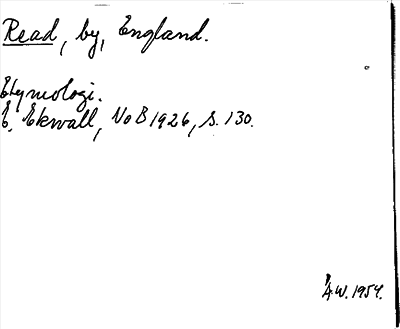 Read, by, England.
Etymologi.
E. Ekwall, NoB 1926, s. 130.
Å W. 1954.